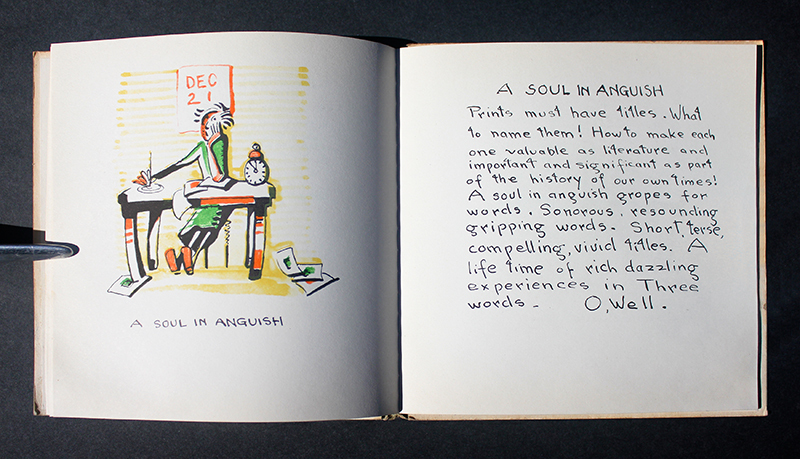 DEC
21
A SOUL IN ANGUISH
A SOUL IN ANGUISH
Prints must have titles. What
to name them! How to make each
one valuable as literature and
important and significant as part
of the history of our own times!
A soul in anguish gropes for
words. Sonorous, resounding
gripping words. Short, terse,
compelling, vivid titles. A
life time of rich dazzling
experiences in Three
words. O, Well.